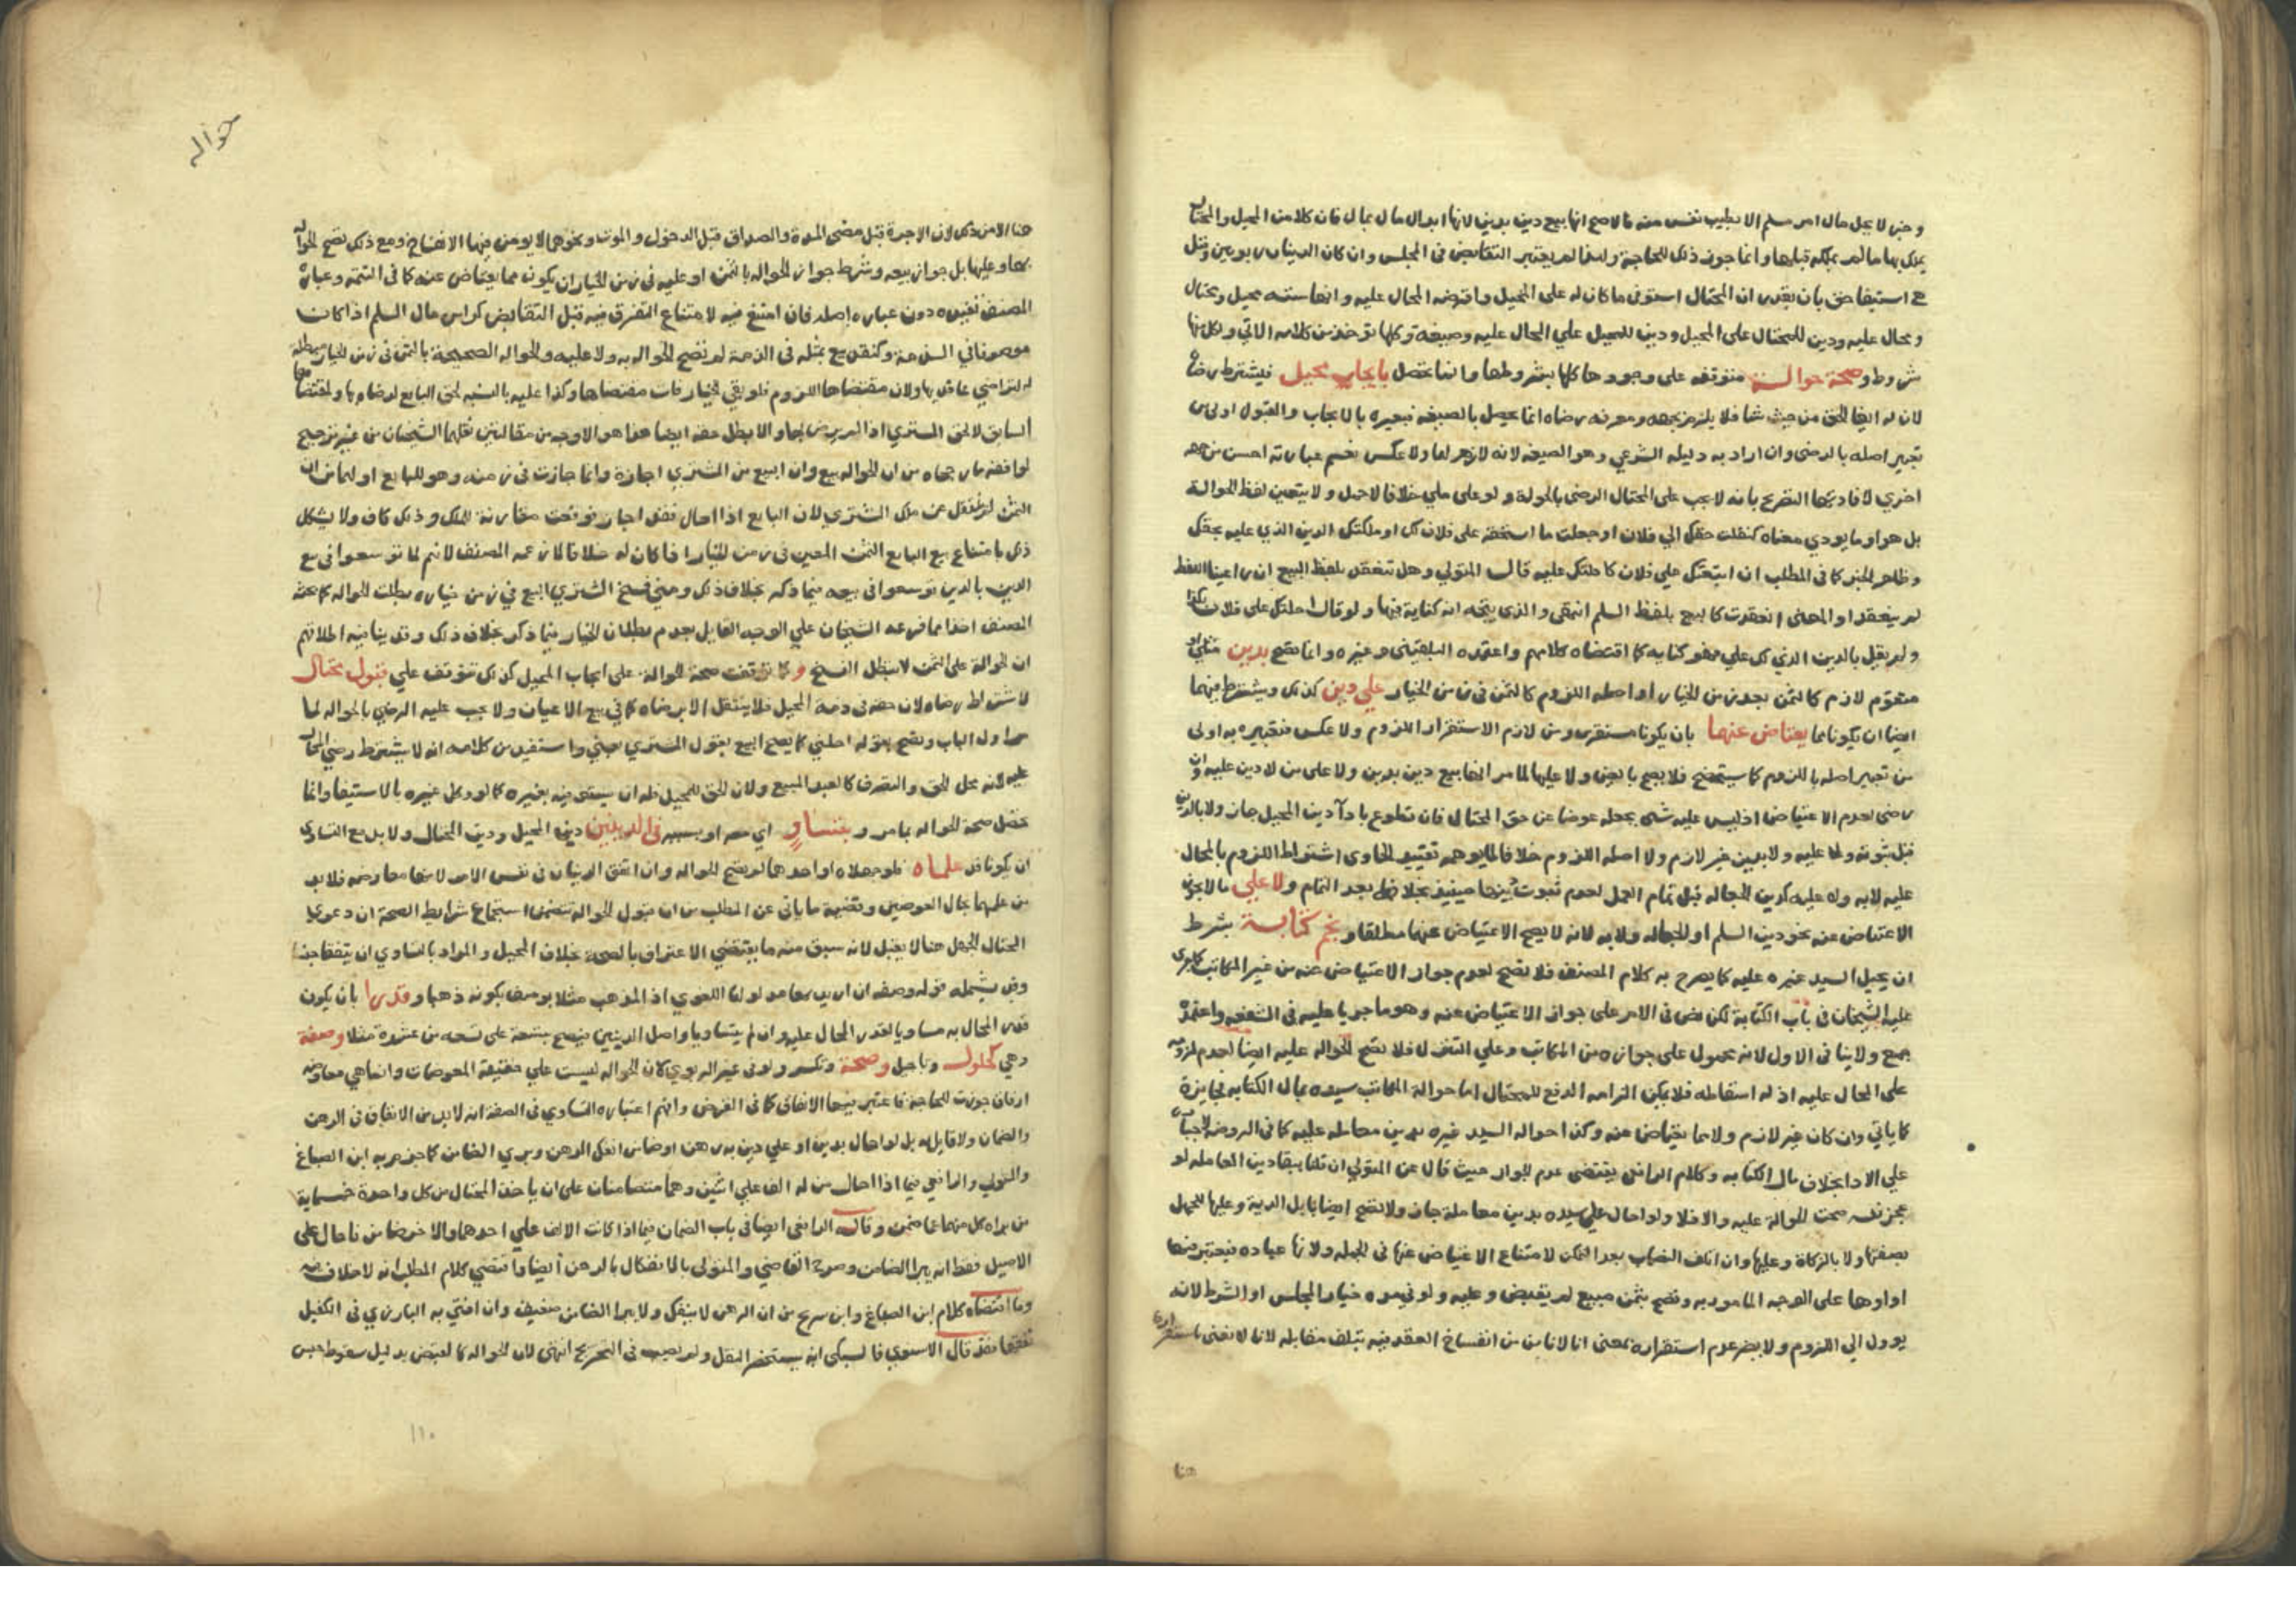 وخبر لا يحل مال امرء مسلم الا بطيب نفس منه فالاصح انها بيع دين بدين لانها ابدال مال بمال فان كلا من المحيل والمحتال
يملك بها ما لم يملكه قبلها وانما جوز ذلك للحاجة ولهذا لم يعتبر التقابض في المجلس وان كان الدينان ربويين وقيل
استيفا حق بان يقدر ان المحتال استوفى ما كان له على المحيل واقرضه المحال عليه واركانها ستة محيل ومحتال
ومحال عليه ودين للمحتال على المحيل ودين للمحيل علي المحال عليه وصيغة وكلها تؤخذ من كلامه الاتي ولكل منها
شروط وصحة حوالة متوقفه على وجودها كلها بشروطها وانما تحصل بايجاب محيل فيشترط رضاه
لان له ايفا الحق من حيث شا فلا يلزم بجهه ومعرفة رضاه انما يحصل بالصيغه فتعبيره بالايجاب والقبول اولى من
تعبير اصله بالرضى وان اراد به دليله الشرعي وهو الصيغه لانه لازم لها ولا عكس نعم عبارته احسن من جهه
اخرى لافادتها التصريح بانه لا يجب على المحتال الرضى بالحوالة ولو على ملي خلافا لاحمد ولا يتعين لفظ الحوالة
بل هو او ما يودي معناه كنقلت حقك الي فلان او جعلت ما استحقه على فلان لك او ملكتك الدين الذي عليه بحقك
وظاهر الخبر كما في المطلب ان اتبعتك علي فلان كاحلتك عليه قال المتولي وهل تنعقد بلفظ البيع ان راعينا اللفظ
لم ينعقد او المعنى انعقدت كالبيع بلفظ السلم انتهى والذي يتجه انه كناية فيها ولو قال احلتك على فلان بكذا
ولم يقل بالدين الذي لك علي فهو كنايه كما اقتضاه كلامهم واعتمده البلقيني وغيره وانما تصح بدين مثلي او
متقوم لازم كالثمن بعد زمن الخيار او اصله اللزوم كالثمن في زمن الخيار علي دين كذلك ويشترط فيهما
ايضا ان يكونا مما يعتاض عنهما بان يكونا مستقرين ومن لازم الاستقرار اللزوم ولا عكس فتعبيره به اولى
من تعبير اصله باللزوم كما سيتضح فلا يصح بالعين ولا عليها لما مر انها بيع دين بدين ولا على من لا دين عليه وان
رضي لعدم الاعتياض اذ ليس عليه شي يجعله عوضا عن حق المحتال فان تطوع بادآ دين المحيل جاز ولا بالدين
قبل ثبوته ولا عليه ولا بدين غير لازم ولا اصله اللزوم خلافا لما يوهمه تقييد الحاوي اشتراط اللزوم بالمحال
عليه لا به ولا عليه كدين الجعاله قبل تمام العمل لعدم ثبوت دينها حينئذ بخلافها بعد التمام ولا علي ما لا يجوز
الاعتياض عنه نحو دين السلم او الجعاله ولا به لانه لا يصح الاعتياض عنهما مطلقا ونجم كتابة بشرط
ان يحيل السيد غيره عليه كما يصرح به كلام المصنف فلا تصح لعدم جواز الاعتياض عنه من غير المكاتب كما جرى
عليه الشيخان في باب الكتابة لكن نص في الام على جواز الاعتياض عنه وهو ما جريا عليه في الشفعه واعتمده
جمع ولا ينافي الاول لانه محمول على جوازه من المكاتب وعلي التنزل فلا تصح الحواله عليه ايضا لعدم لزومه
على المحال عليه اذ له اسقاطه فلا يمكن الزامه الدفع للمحتال اما حوالة المكاتب سيده بمال الكتابه فجايزة
كما ياتي وان كان غير لازم ولا مما يعتاض عنه وكذا حواله السيد غيره بدين معامله عليه كما في الروضه
علي الادا بخلاف مال الكتابه وكلام الرافعي يقتضى عدم الجواز حيث قال عن المتولي ان قلنا ببقا دين المعامله لو
عجز نفسه صحت الحوالة عليه والا فلا ولو احال علي سيده بدين معاملة جاز ولا تصح ايضا بابل الدية وعليها للجهل
بصفتها ولا بالزكاة وعليها وان اتلف النصاب بعد التمكن لامتناع الاعتياض عنها في الجمله ولانها عباده فيعتبر فيها
اداوها على الوجه المامور به وتصح بثمن مبيع لم يقبض وعليه ولو في مده خيار المجلس او الشرط لانه
يوول الي اللزوم ولا يضر عدم استقراره بمعنى انا لا نامن من انفساخ العقد فيه بتلف مقابله لانا لا نعنى باستقراره
هنا
حواله
هنا الامن ذلك لان الاجرة قبل مضى المدة والصداق قبل الدخول والموت ونحوهما لا يومن فيهما الانفساخ ومع ذلك تصح الحواله
بها وعليها بل جواز بيعه وشرط جواز الحواله بالثمن او عليه في زمن الخيار ان يكون مما يعتاض عنه كما في التتمه وعبارة
المصنف تفيده دون عباره اصله فان امتنع فيه لامتناع التفرق فيه قبل التقابض كراس مال السلم اذا كان
موصوفا في الذمة وكنقد بيع بمثله في الذمة لم تصح الحواله به ولا عليه والحواله الصحيحة بالثمن في زمن الخيار مبطلة
له لتراضي عاقديها ولان مقتضاها اللزوم فلو بقي الخيار فات مقتضاها وكذا عليه بالنسبه لحق البايع لرضاه بها
السابق لا لحق المشتري اذا لم يرض بها والا بطل حقه ايضا هذا هو الاوجه من مقالتين نقلهما الشيخان من غير ترجيح
لموافقته ما رجحاه من ان الحواله بيع وان البيع من المشتري اجازة وانما جازت في زمنه وهو للبايع او لهما من ان
الثمن لم ينتقل عن ملك المشتري لان البايع اذا احال فقد اجاز فوقعت مقارنة للملك وذلك كاف ولا يشكل
ذلك بامتناع بيع البايع الثمن المعين في زمن الخيار اذا كان له خلافا لما زعمه المصنف لانهم لما توسعوا في بيع
الدين بالدين توسعوا في بيعه فيما ذكر بخلاف ذلك ومتى فسخ المشتري البيع في زمن خياره بطلت الحواله كما بحثه
المصنف اخذا مما فرعه الشيخان علي الوجه القايل بعدم بطلان الخيار فيما ذكر بخلاف ذلك وقد ينافيه اطلاقهم
ان الحوالة على الثمن لا تبطل الفسخ وكما توقفت صحة الحوالة على ايجاب المحيل كذلك تتوقف علي قبول محتال
لاشتراط رضاه لان حقه في ذمة المحيل فلا ينتقل الا برضاه كما في بيع الاعيان ولا يجب عليه الرضي بالحواله لما
مر اول الباب وتصح بقوله احلني كما يصح البيع بقول المشتري بعني واستفيد من كلامه انه لا يشترط رضي المحال
عليه لانه محل الحق والتصرف كالعبد المبيع ولان الحق للمحيل فله ان يستوفيه بغيره كما لو وكل غيره بالاستيفا وانما
تحصل صحة الحواله بما مر وبتساو اي معه او بسببه في الدينين دين المحيل ودين المحتال ولا بد مع التساوي
ان يكونا قد علماه فلو جهلاه او احدهما لم تصح الحواله وان اتفق الدينان في نفس الامر لانها معاوضه فلا بد
من علمهما بحال العوضين وقضية ما ياتي عن المطلب من ان قبول الحوالة يتضمن استجماع شرايط الصحة ان دعوى
المحتال الجهل هنا لا يقبل لانه سبق منه ما يقتضي الاعتراف بالصحة بخلاف المحيل والمراد بالتساوي ان يتفقا جنسا
وقد يشمله قوله وصفه ان اريد بها مدلولها اللغوي اذ المذهب مثلا يوصف بكونه ذهبا وقدرا بان يكون
قدر المحال به مساويا لقدر المحال عليه وان لم يتساويا واصل الدينين فيصح بتسعة على تسعه من عشرة مثلا وصفة
وهي كحلول وتاجيل وصحة وتكسر ولو في غير الربوي لان الحواله ليست علي حقيقة المعوضات وانما هي معاوضه
ارفاق جوزت للحاجة فاعتبر فيها الاتفاق كما في القرض وافهم اعتباره التساوي في الصفة انه لا بد من الاتفاق في الرهن
والضمان ولا قايل به بل لو احال بدين او علي دين به رهن او ضامن انفك الرهن وبري الضامن كما جزم به ابن الصباغ
والمتولي والرافعي فيما اذا احال من له الف علي اثنين وهما متضامنان على ان ياخذ المحتال من كل واحدة خمسماية
من براه كل منهما عما ضمن وقال الرافعي ايضا في باب الضمان فيما اذا كانت الالف علي احدهما والاخر ضامن فاحال على
الاصيل فقط انه يبرا الضامن وصرح القاضي والمتولي بالانفكاك بالرهن ايضا واقتضي كلام المطلب انه لا خلاف فيه
وما اقتضاه كلام ابن الصباغ وابن سريج من ان الرهن لا ينفك ولا يبرا الضامن ضعيف وان افتى به البارزي في الكفيل
تفقها فقد قال الاسنوي كالسبكي انه لم يستحضر النقل ولم يصب في التخريج انتهى لان الحواله كالقبض بدليل سقوط حبس
١١٠